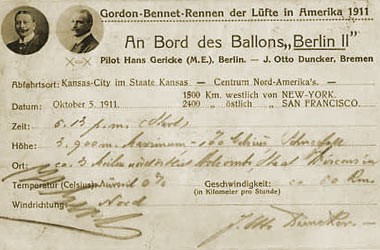 Gordon-Bennet-Rennen der Lüfte in Amerika 1911
An Bord des Ballons „Berlin II"
Pilot Hans Gericke (M.E.), Berlin. — J. Otto Duncker, Bremen
Abfahrtsort: Kansas-City im Staate Kansas — Centrum Nord-Amerika's. —
Datum: Oktober 5. 1911. 1800 Km. westlich von NEW-YORK.
2400 „ östlich „ SAN FRANCISCO.
Zeit: 6.13 p.m.
Höhe: 3,900 m.
Ort: ca. 3
Temperatur (Celsius) 0°
Geschwindigkeit: ca 50 Km
(in Kilometer pro Stunde)
Windrichtung: Nord
J. Otto Duncker.